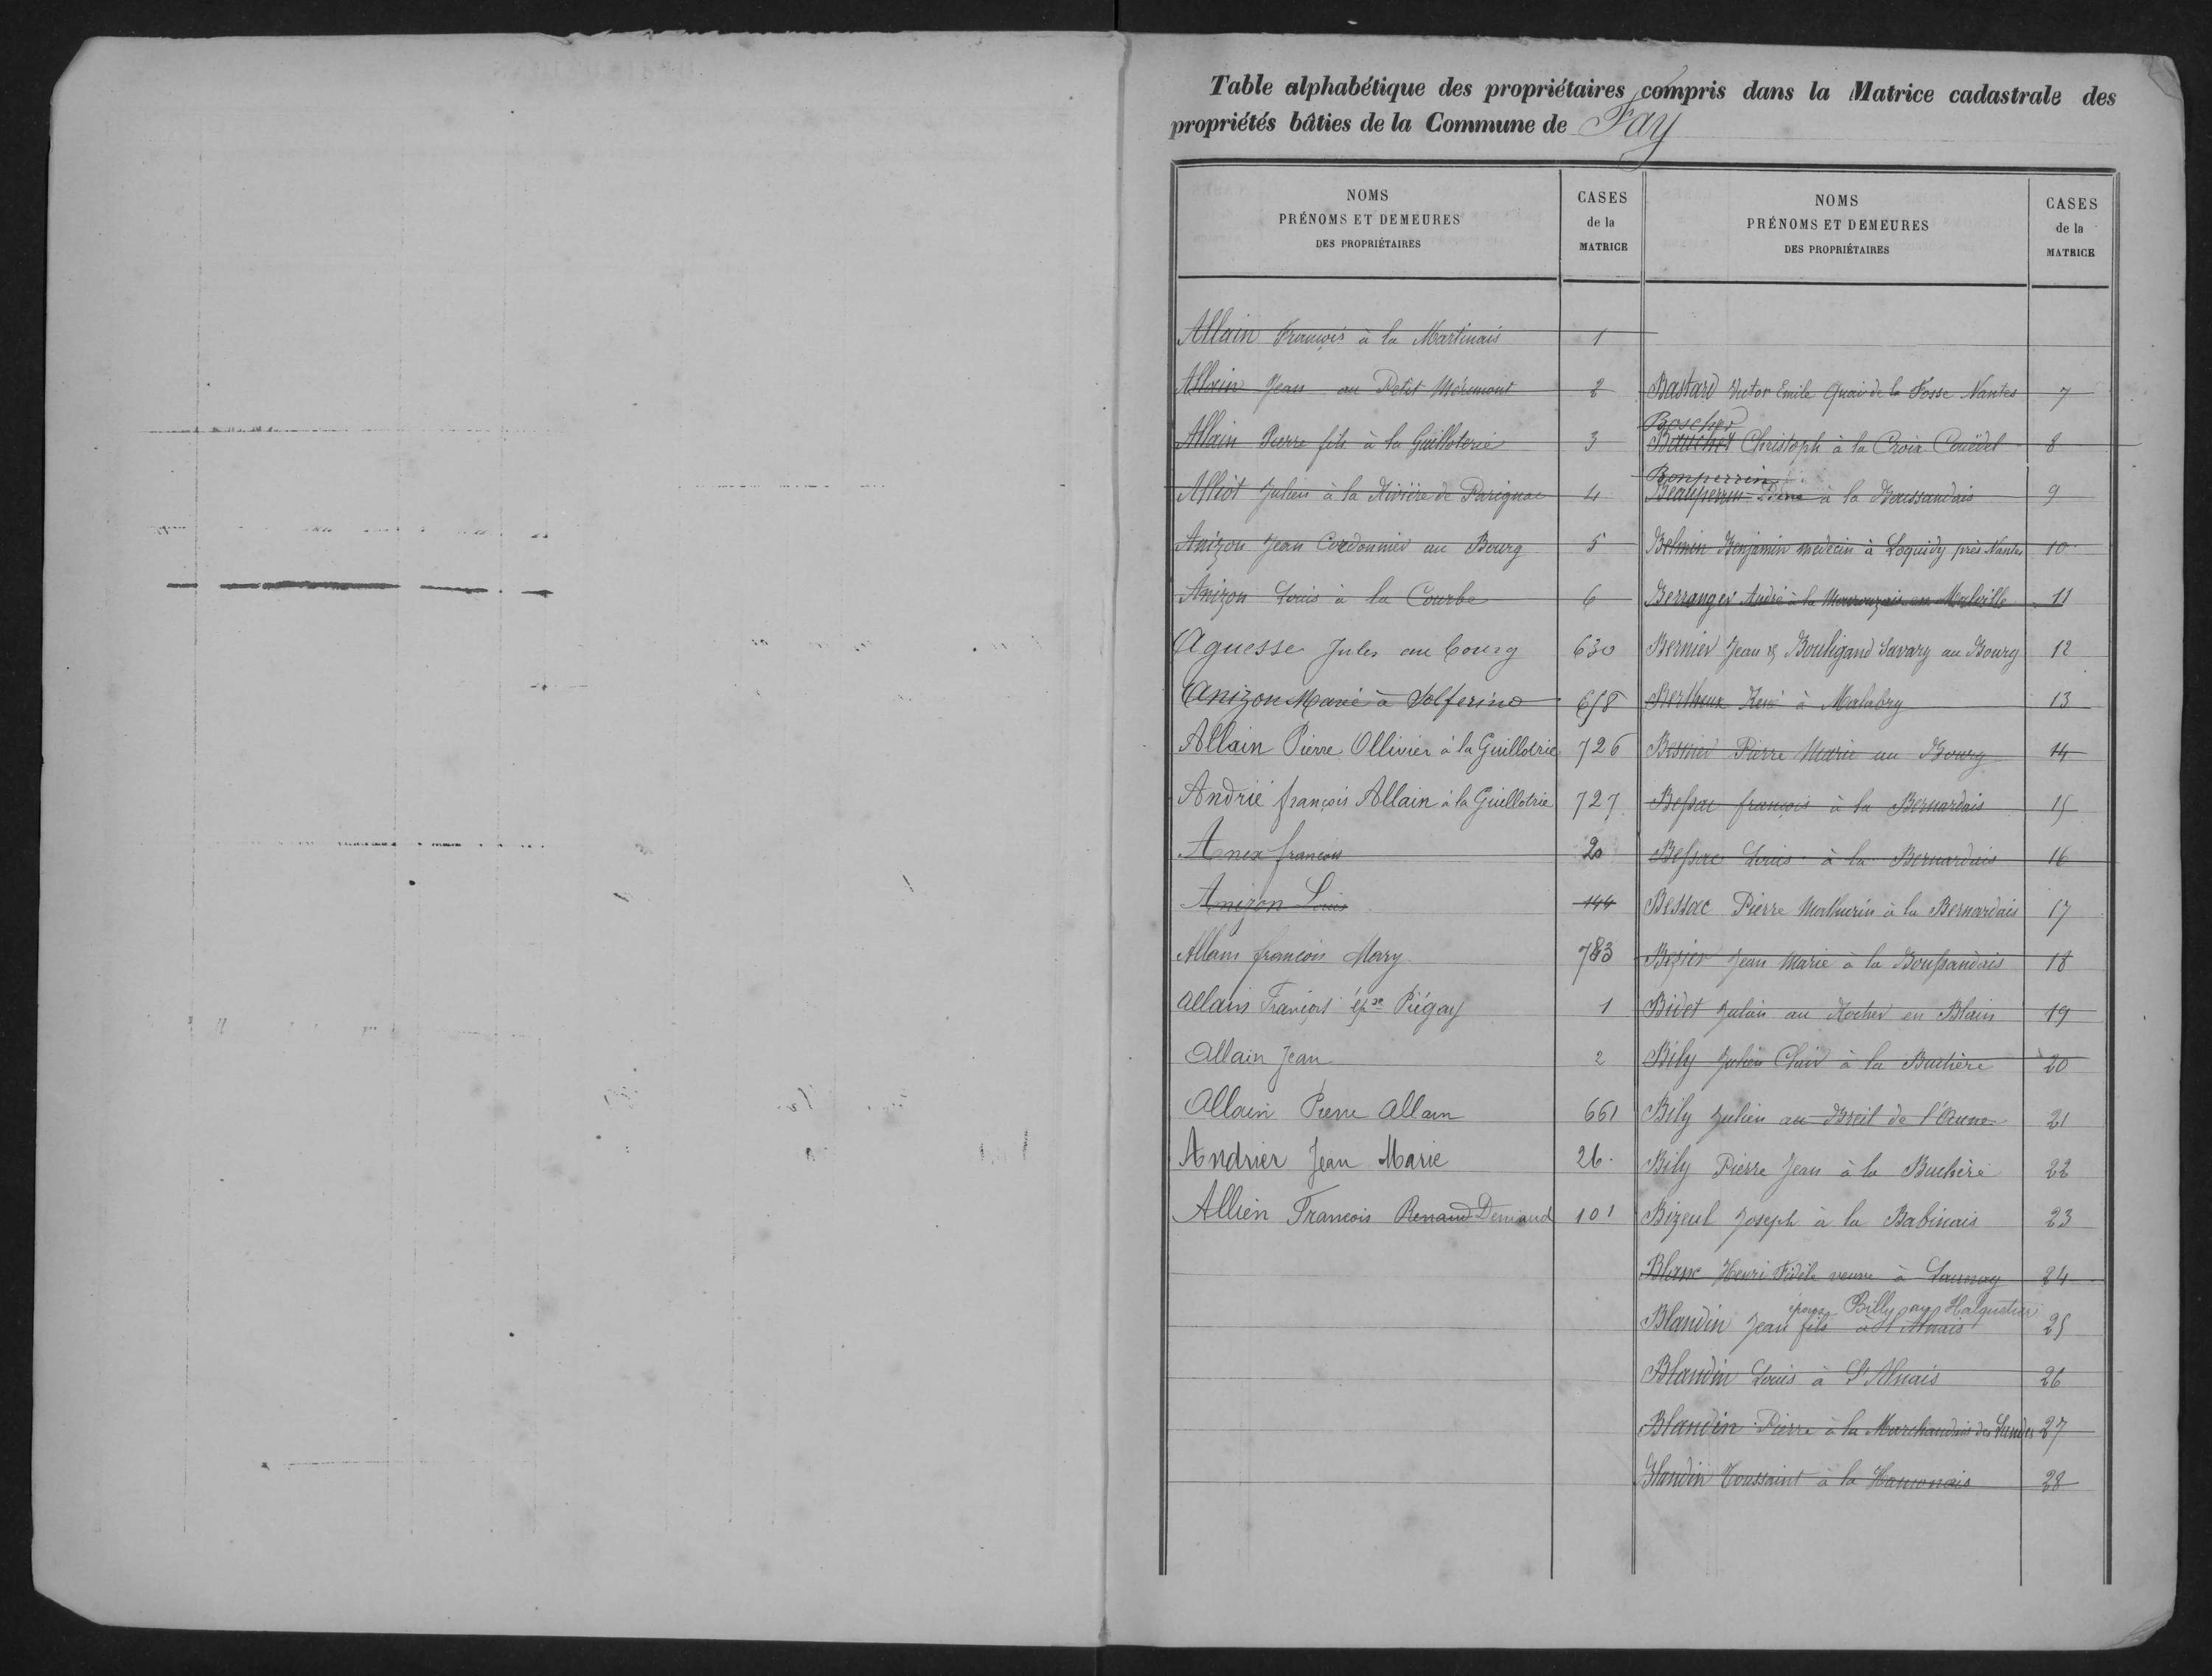 Table alphabétique des propriétaires compris dans la Matrice cadastrale des
propriétés bâties de la Commune de Fay
NOMS
PRÉNOMS ET DEMEURES
DES PROPRIÉTAIRES
CASES
de la
MATRICE
Allain François à la Martinais 1
Allain Jean au Petit Mérimont 2
Allain Pierre fils à la Guilloterie 3
Alliot Julien à la Rivière de Parignac 4
Anizon Jean Cordonnier au Bourg 5
Anizon Louis à la Courbe 6
Aguesse Jules au bourg 630
Anizon Marie à Solferino 658
Allain Pierre Ollivier à la Guillotrie 726
Andrié françois Allain à la Guillotrie 727
Anex francois 20
Anizon Louis 144
Allain francois Mary 783
Allain François épse Piégay 1
Allain Jean 2
Allain Pierre Allain 661
Andrier Jean Marie 26
Allien Francois Renaud Deniaud 101
NOMS
PRÉNOMS ET DEMEURES
DES PROPRIÉTAIRES
CASES
de la
MATRICE
Bastard Victor Emile Quai de la Fosse Nantes 7
Boscher
Bauchet Christoph à la Croix Couëdel 8
Bonperrin
Beauperrin à la Boussandais 9
Belmin Benjamin medecin à Loquidy près Nantes 10
Berranger André à la en Malville 11
Bernier Jean & Bouligand Savary au Bourg 12
Bertheux René à Malabry 13
Besnier Pierre Marie au Bourg 14
Bessac françois à la Bernardais 15
Bessac Louis à la Bernardais 16
Bessac Pierre Mathurin à la Bernardais 17
Bézier Jean Marie à la Boussandais 18
Bidet Julien au Rocher en Blain 19
Bily Julien Clair à la Buchère 20
Bily Julien au Breil de l'Aune 21
Bily Pierre Jean à la Buchère 22
Bizeul Joseph à la Babinais 23
Blanc Henri Fidèle veuve à Launay 24
époux Billy au Halquetier
Blandin Jean fils à 25
Blandin Louis à 26
Blandin Pierre à la Marchandais des Landes 27
Blandin Toussaint à la 28